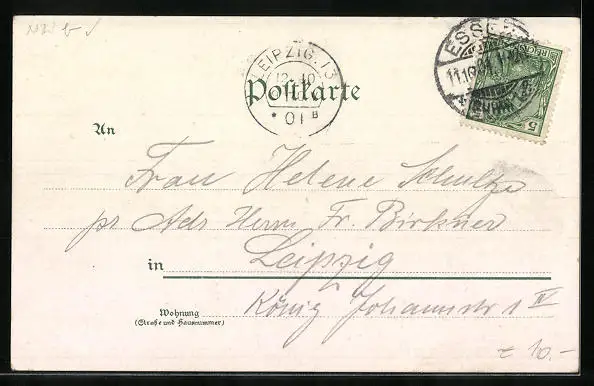 ESSEN
11.10.01
LEIPZIG. 13
12.10
* 01 B
Postkarte
5
An
Frau Helene Schultze
pr Adr Herrn Fr. Birkner
in Leipzig
Wohnung
(Straße und Hausnummer)
König Johannstr 1 IV
10.-